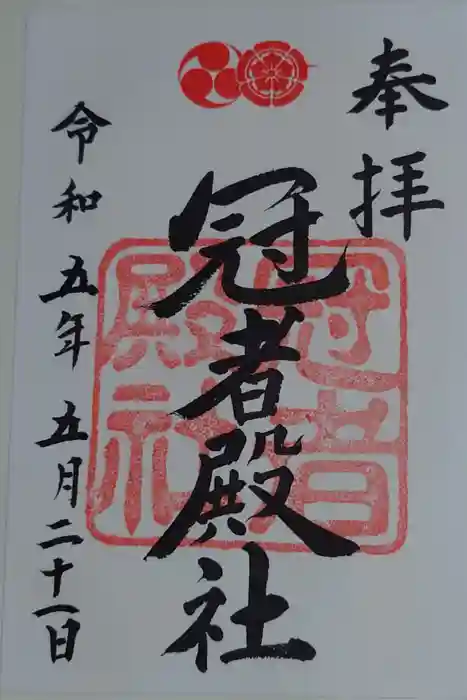 奉拝
冠者殿社
冠者殿社
令和五年五月二十一日